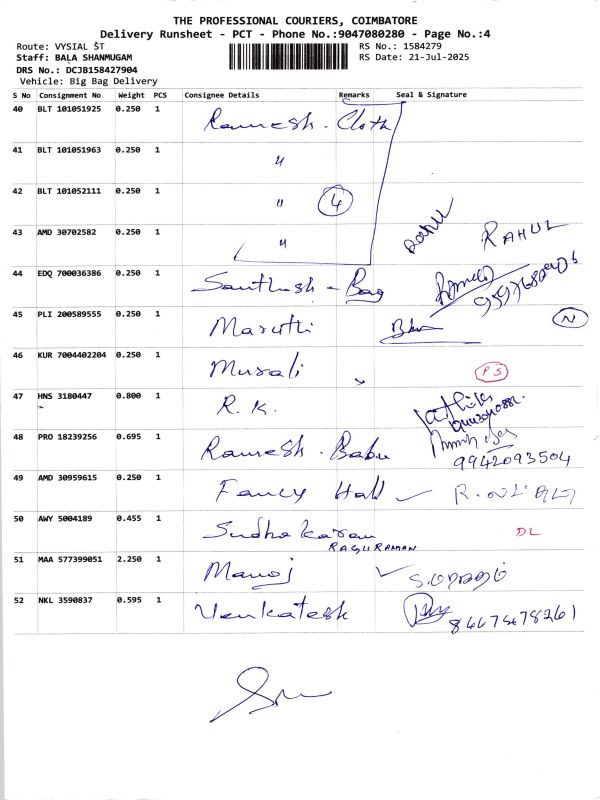 THE PROFESSIONAL COURIERS, COIMBATORE
Delivery Runsheet - PCT - Phone No.:9047080280 - Page No.:4
Route: VYSIAL ST
RS No.: 1584279
Staff: BALA SHANMUGAM
RS Date: 21-Jul-2025
DRS No.: DCJB158427904
Vehicle: Big Bag Delivery
S No Consignment No Weight PCS Consignee Details Remarks Seal & Signature
40 BLT 101051925 0.250 1 Ramesh - Cloth
41 BLT 101051963 0.250 1 "
42 BLT 101052111 0.250 1 " 4
43 AMD 30702582 0.250 1 " RAHUL
44 EDQ 700036386 0.250 1 Santhosh - Bag
45 PLI 200589555 0.250 1 Maruthi N
46 KUR 7004402204 0.250 1 Murali PS
47 HNS 3180447 0.800 1 R.K.
48 PRO 18239256 0.695 1 Ramesh Babu 9942093504
49 AMD 30959615 0.250 1 Fancy Hall
50 AWY 5004189 0.455 1 Sudhakaran DL
RAGURAMAN
51 MAA 577399051 2.250 1 Manoj
52 NKL 3590837 0.595 1 Venkatesh